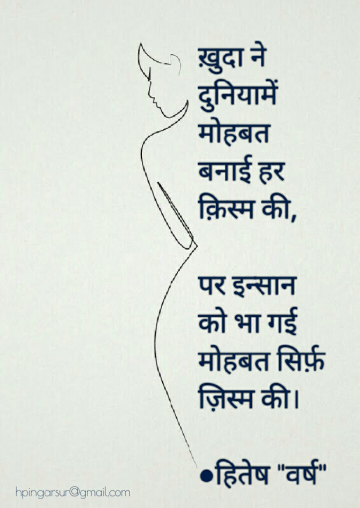 ख़ुदा ने
दुनियामें
मोहबत
बनाई हर
क़िस्म की,
पर इन्सान
को भा गई
मोहबत सिर्फ़
ज़िस्म की।
●हितेष "वर्ष"
hpingarsur@gmail.com